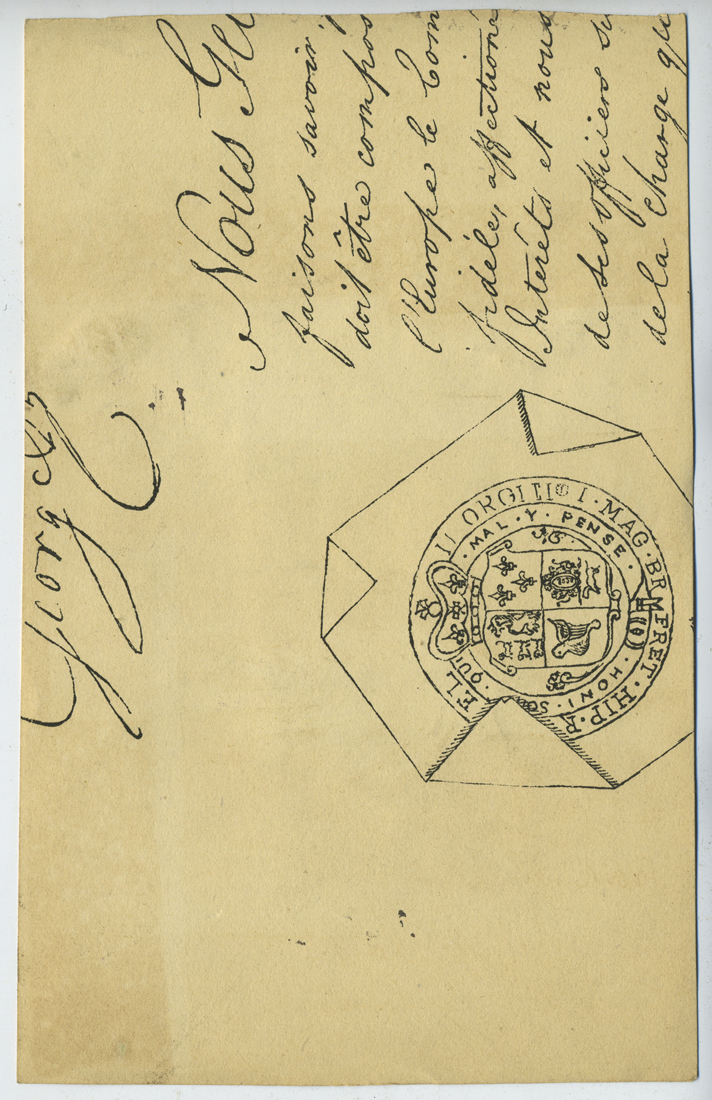 George R
Nous
faisons savoir
doit être compos
l'Europe le Com
fidéle, affectioné
Intérêts et nous
de ses officiers su
de la Charge qu
ORGIUS I · MAG · BR FRET · HIP · R
HONI · SO QUI · MAL · Y · PENSE ·